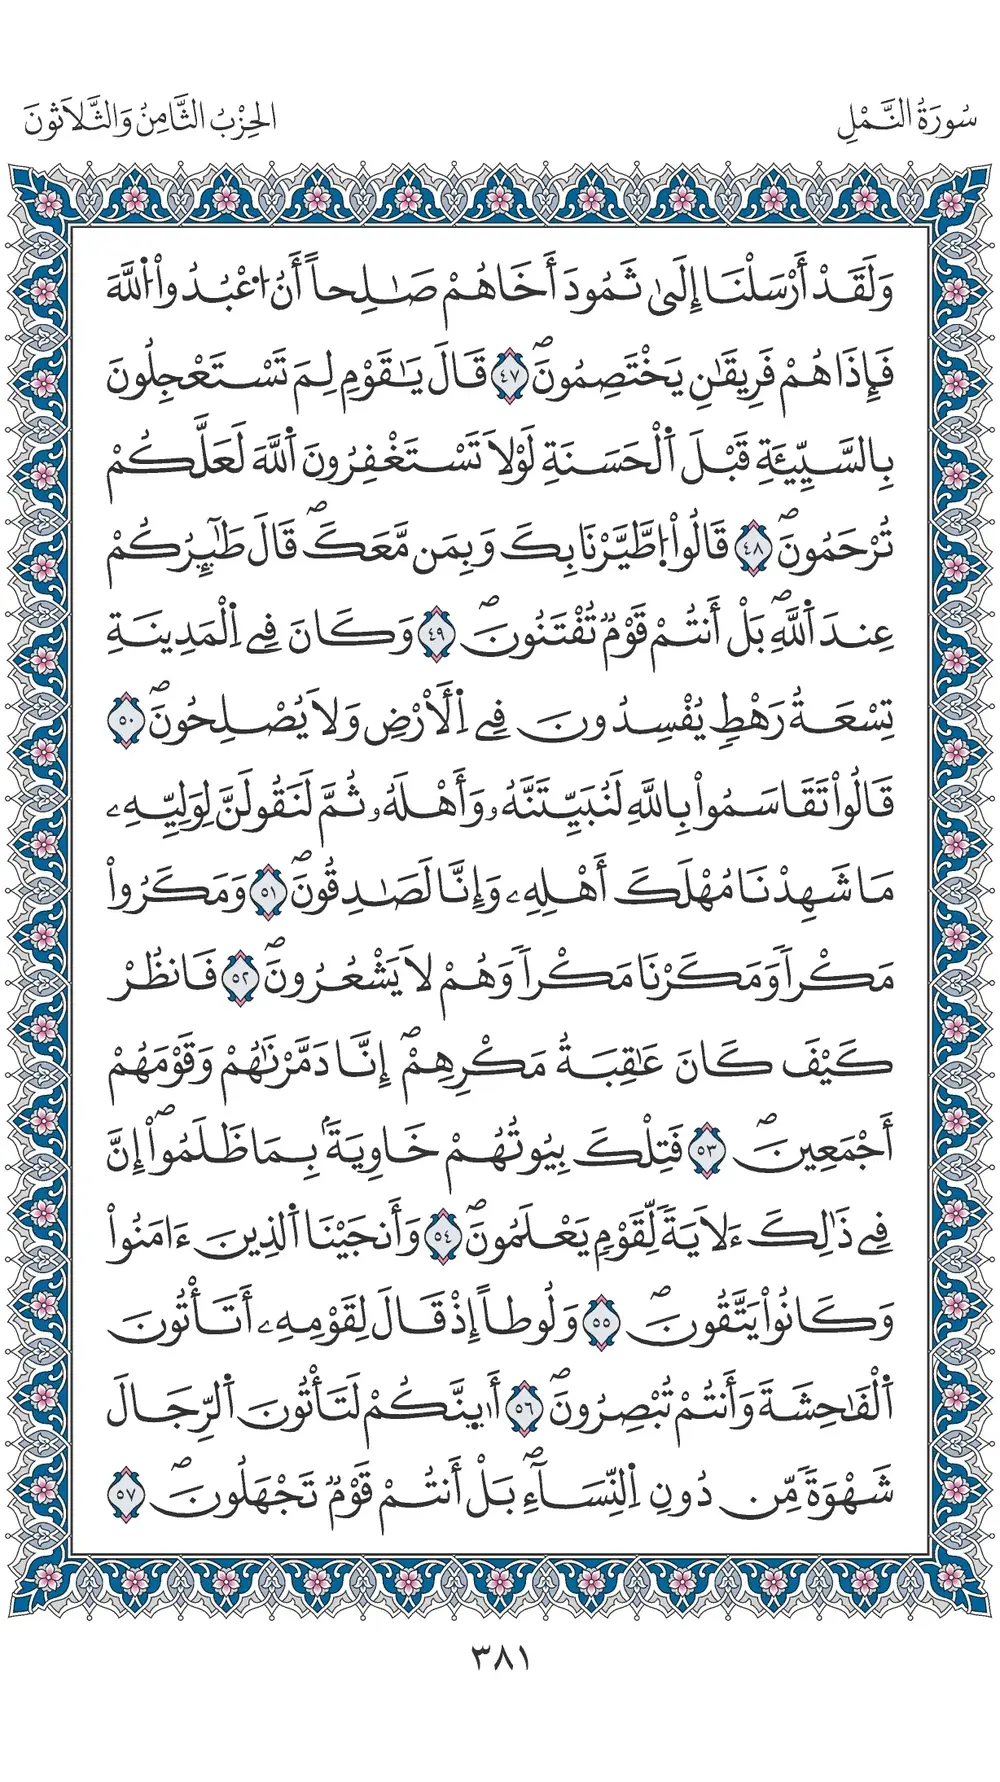 سُورَةُ النَّمْلِ
الحِزْبُ الثَّامِنُ وَالثَّلَاثُونَ
وَلَقَدْ أَرْسَلْنَا إِلَىٰ ثَمُودَ أَخَاهُمْ صَٰلِحاً أَنُ اُ۟عْبُدُواْ اُ۬للَّهَ
فَإِذَا هُمْ فَرِيقَٰنِ يَخْتَصِمُونَۖ ٤٧ قَالَ يَٰقَوْمِ لِمَ تَسْتَعْجِلُونَ
بِالسَّيِّئَةِ قَبْلَ اَ۬لْحَسَنَةِ لَوْلَا تَسْتَغْفِرُونَ اَ۬للَّهَ لَعَلَّكُمْ
تُرْحَمُونَۖ ٤٨ قَالُواْ اُ۪طَّيَّرْنَا بِكَ وَبِمَن مَّعَكَۖ قَالَ طَٰٓئِرُكُمْ
عِندَ اَ۬للَّهِۖ بَلْ أَنتُمْ قَوْمٞ تُفْتَنُونَۖ ٤٩ وَكَانَ فِے اِ۬لْمَدِينَةِ
تِسْعَةُ رَهْطٖ يُفْسِدُونَ فِے اِ۬لَارْضِ وَلَا يُصْلِحُونَۖ ٥٠
قَالُواْ تَقَاسَمُواْ بِاللَّهِ لَنُبَيِّتَنَّهُۥ وَأَهْلَهُۥ ثُمَّ لَنَقُولَنَّ لِوَلِيِّهِۦ
مَا شَهِدْنَا مُهْلَكَ أَهْلِهِۦ وَإِنَّا لَصَٰدِقُونَۖ ٥١ وَمَكَرُواْ
مَكْراٗ وَمَكَرْنَا مَكْراٗ وَهُمْ لَا يَشْعُرُونَۖ ٥٢ فَانظُرْ
كَيْفَ كَانَ عَٰقِبَةُ مَكْرِهِمْۖ إِنَّا دَمَّرْنَٰهُمْ وَقَوْمَهُمْ
أَجْمَعِينَۖ ٥٣ فَتِلْكَ بِيُوتُهُمْ خَاوِيَةَۢ بِمَا ظَلَمُواْۖ إِنَّ
فِے ذَٰلِكَ ءَلَايَةٗ لِّقَوْمٖ يَعْلَمُونَۖ ٥٤ وَأَنجَيْنَا اَ۬لذِينَ ءَامَنُواْ
وَكَانُواْ يَتَّقُونَۖ ٥٥ وَلُوطاً إِذْ قَالَ لِقَوْمِهِۦ أَتَأْتُونَ
اَ۬لْفَٰحِشَةَ وَأَنتُمْ تُبْصِرُونَۖ ٥٦ أَٰئِنَّكُمْ لَتَأْتُونَ اَ۬لرِّجَالَ
شَهْوَةٗ مِّن دُونِ اِ۬لنِّسَآءِۖ بَلْ أَنتُمْ قَوْمٞ تَجْهَلُونَۖ ٥٧
٣٨١